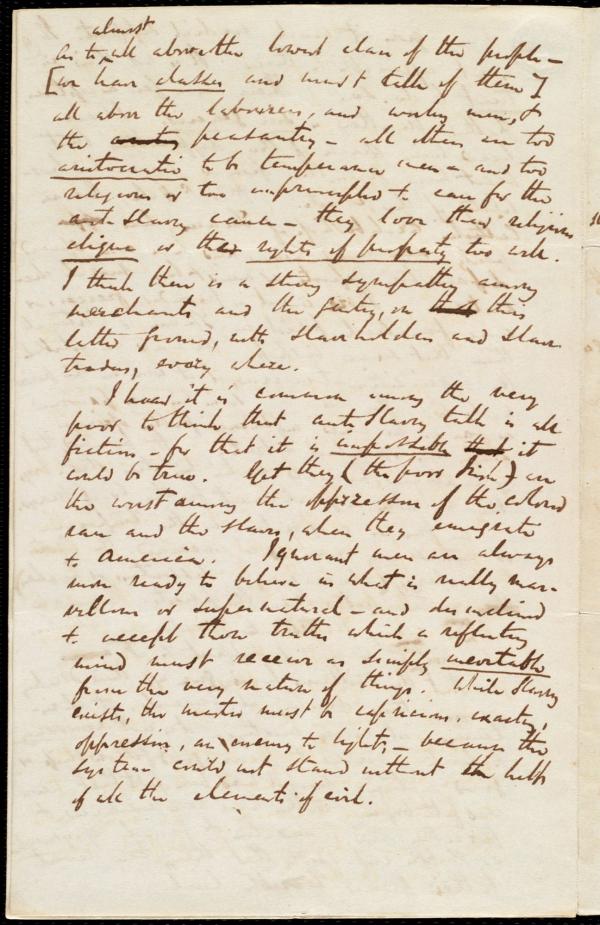 almost
As to all above the lowest class of the people –
[we have classes and must talk of them]
all above the laborers, and working men, &
the peasantry – all others are too
aristocratic to be temperance men – and too
religious or too unprincipled to care for the
anti slavery cause – they love their religious
clique or their rights of property too well.
I think there is a strong sympathy among
merchants and the gentry, on that this
latter ground, with slaveholders and slave
traders, every where.
I hear it is common among the very
poor to think that anti slavery talk is all
fiction – for that it is impossible that it
could be true. Yet they (the poor Irish) are
the worst among the oppressors of the colored
race and the slaves, when they emigrate
to America. Ignorant men are always
more ready to believe in what is really mar-
vellous or supernatural – and disinclined
to accept those truths which a reflecting
mind must receive as simply inevitable
from the very nature of things. While Slavery
exists, the master must be capricious, exacting,
oppressive, an enemy to light, – because the
system could not stand without the help
of all the elements of evil.